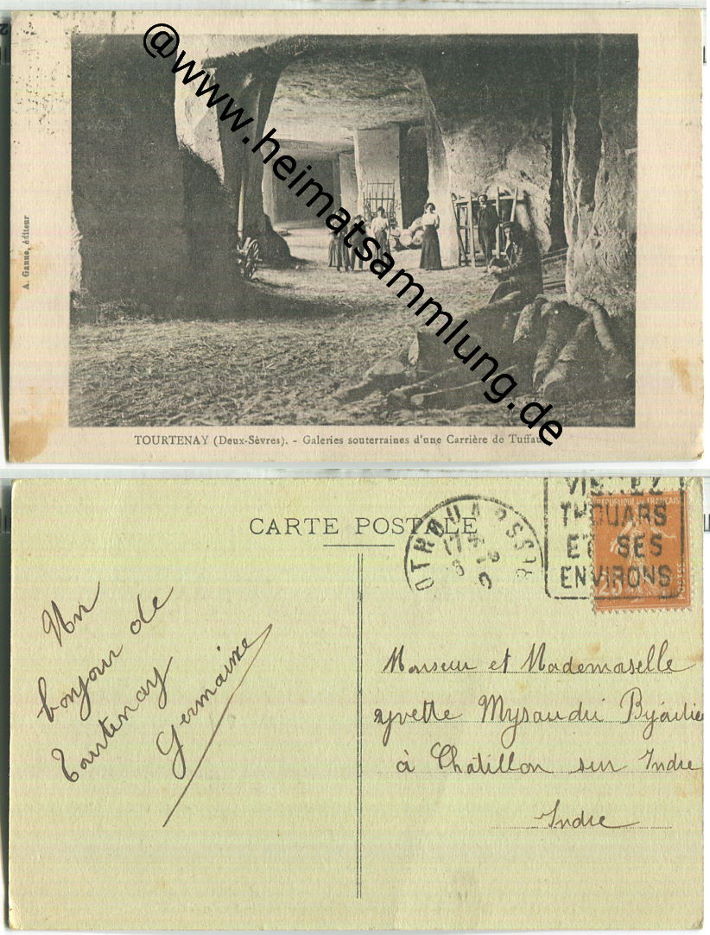 @www.heimatsammlung.de
A. Ganne, éditeur
TOURTENAY (Deux-Sèvres). - Galeries souterraines d'une Carrière de Tuffau
CARTE POSTALE
THOUARS
VISITEZ
THOUARS
ET SES
ENVIRONS
Un
bonjour de
Tourtenay
Germaine
Monsieur et Mademoiselle
yvette
à Chatillon sur Indre
Indre